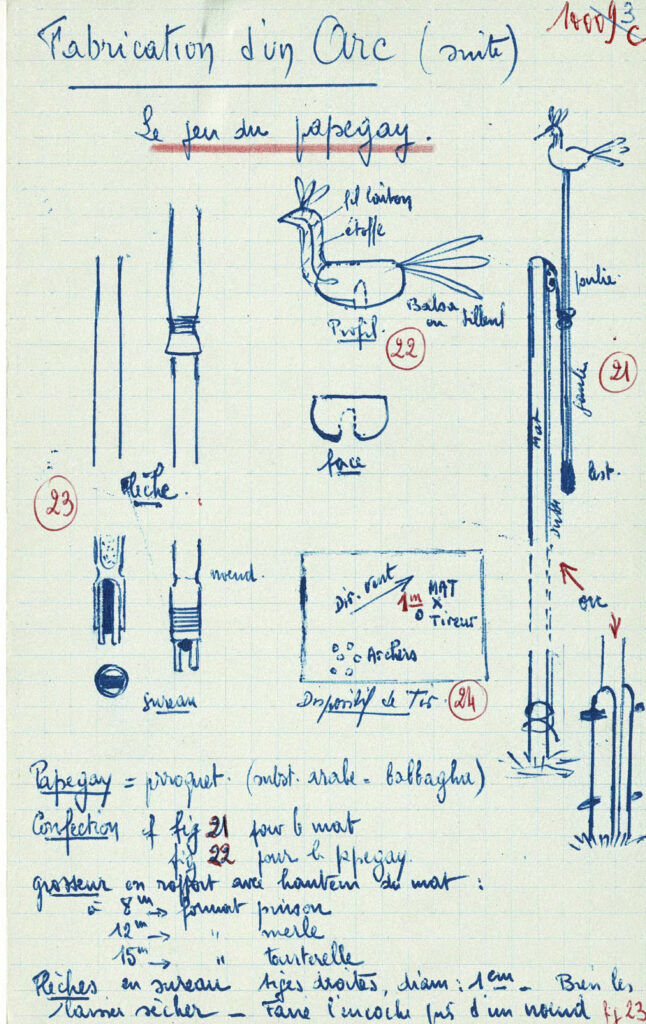 Fabrication d'un Arc (suite)
Le jeu du papegay.
fil laiton
étoffe
Balsa
ou tilleul
Profil.
22
poulie
21
gaule
Mat
lest.
face
23
Flèche.
noeud.
sureau
Dir. vent
1m
MAT
x
o
Tireur
Archers
Dispositif de Tir.
24
arc
Papegay = perroquet. (subst. arabe = babbagha)
Confection cf fig 21 pour le mat
fig 22 pour le ppegay
grosseur en rapport avec hauteur du mat :
à 8m → format pinson
12m → " merle
15m → " tourterelle
Flèches en sureau tiges droites, diam : 1cm - Bien les
laisser sécher - Faire l'encoche près d'un noeud fig 23